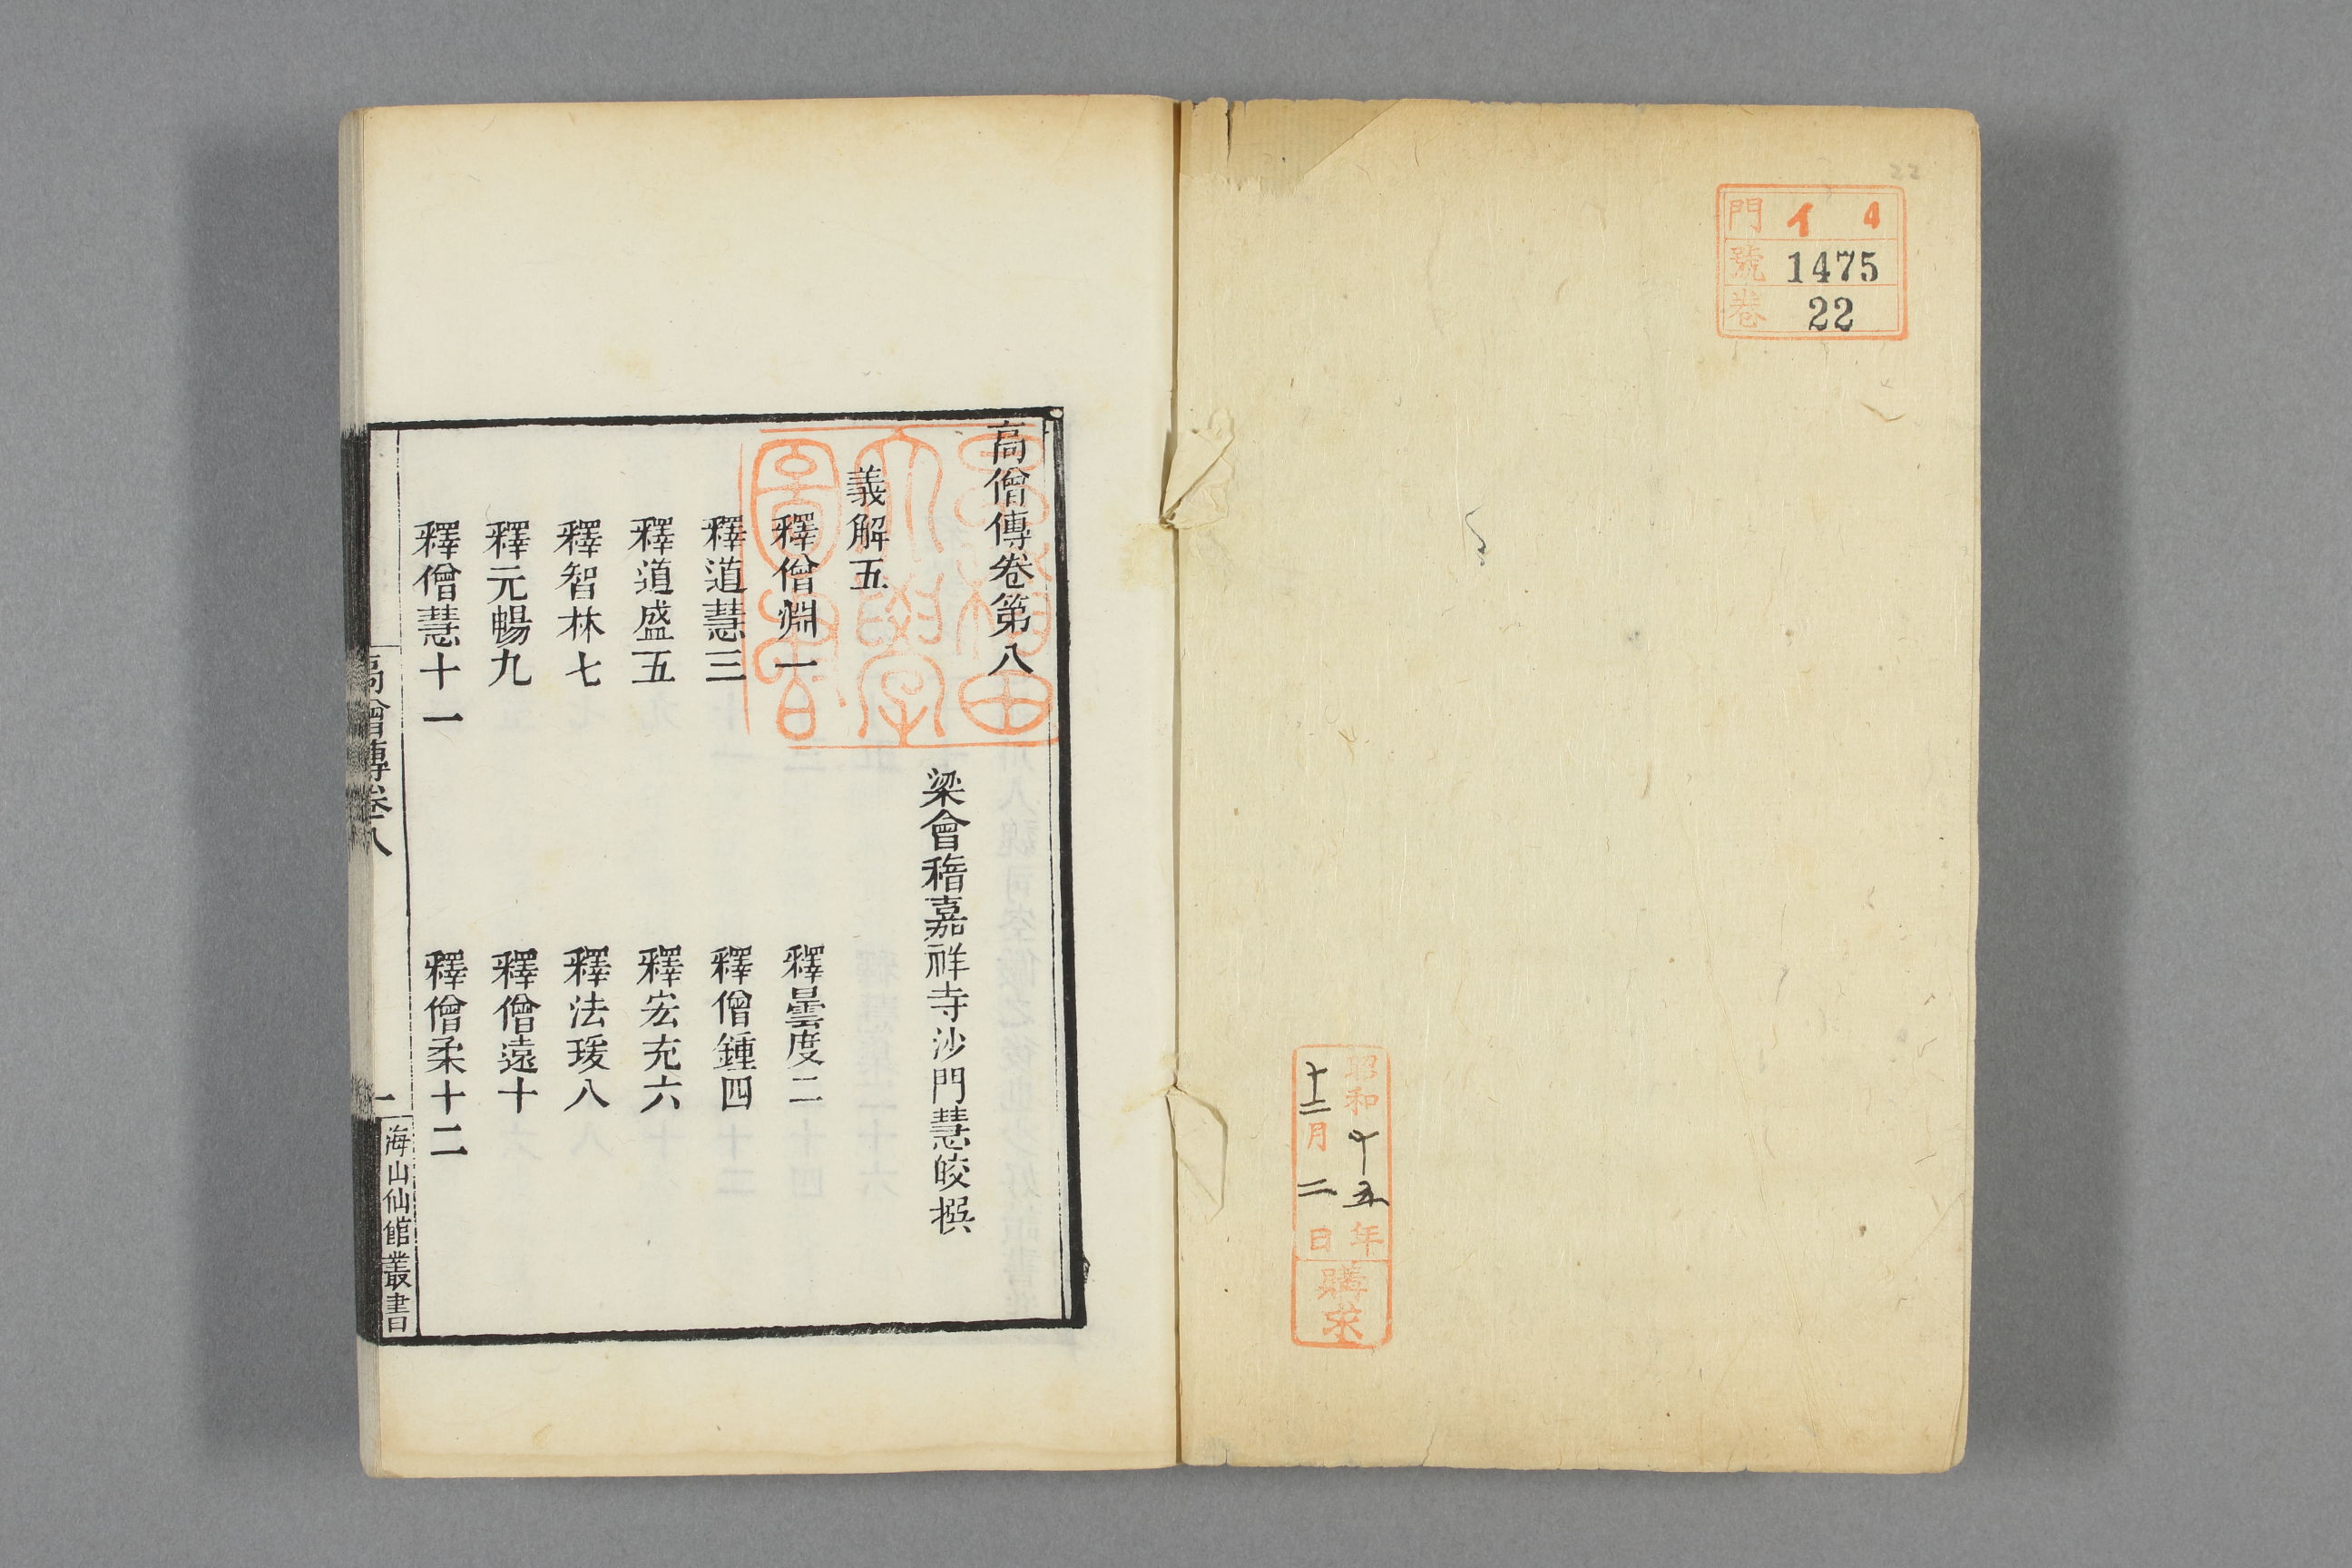 22
門 イ 4
號 1475
卷 22
昭和十五年
十二月二日
購求
高僧傳卷第八
梁會稽嘉祥寺沙門慧皎撰
義解五
釋僧淵一 釋曇度二
釋道慧三 釋僧鍾四
釋道盛五 釋宏充六
釋智林七 釋法瑗八
釋元暢九 釋僧遠十
釋僧慧十一 釋僧柔十二
高僧傳卷八
一
海山仙館叢書
早稻田大學圖書